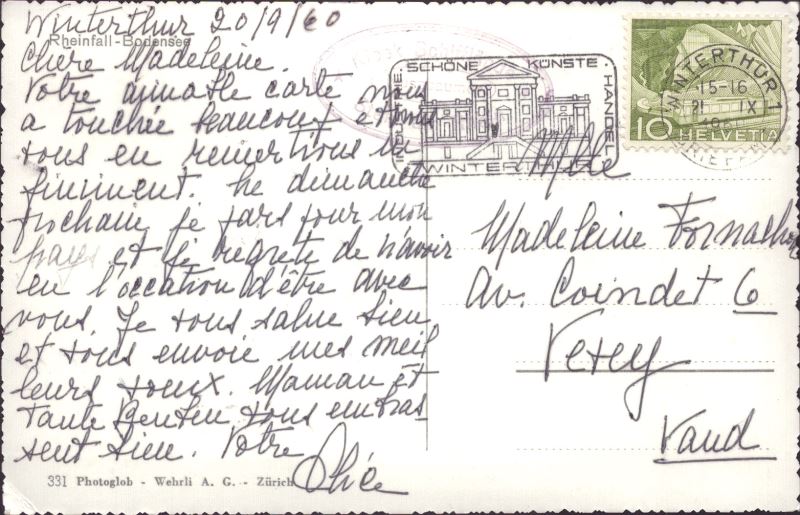 Winterthur 20/9/60
Rheinfall - Bodensee
Chère Madeleine.
Votre aimable carte nous
a touchée beaucoup et nous
vous en remertions in
finiment. Le dimanche
prochain je pars pour mon
pays et je regrete de n'avoir
eu l'occation d'être avec
vous. Je vous salue bien
et vous envoie mes meil
leurs voux. Maman et
Tante vous embras
sent bien. Votre
Alice
331 Photoglob - Wehrli A. G. - Zürich
SCHÖNE KÜNSTE · HANDEL ·
WINTERTHUR
WINTERTHUR 1
15-16
21 IX
BRIEFANN
10 HELVETIA
Mlle
Madeleine
Av. Coindet 6
Vevey
Vaud